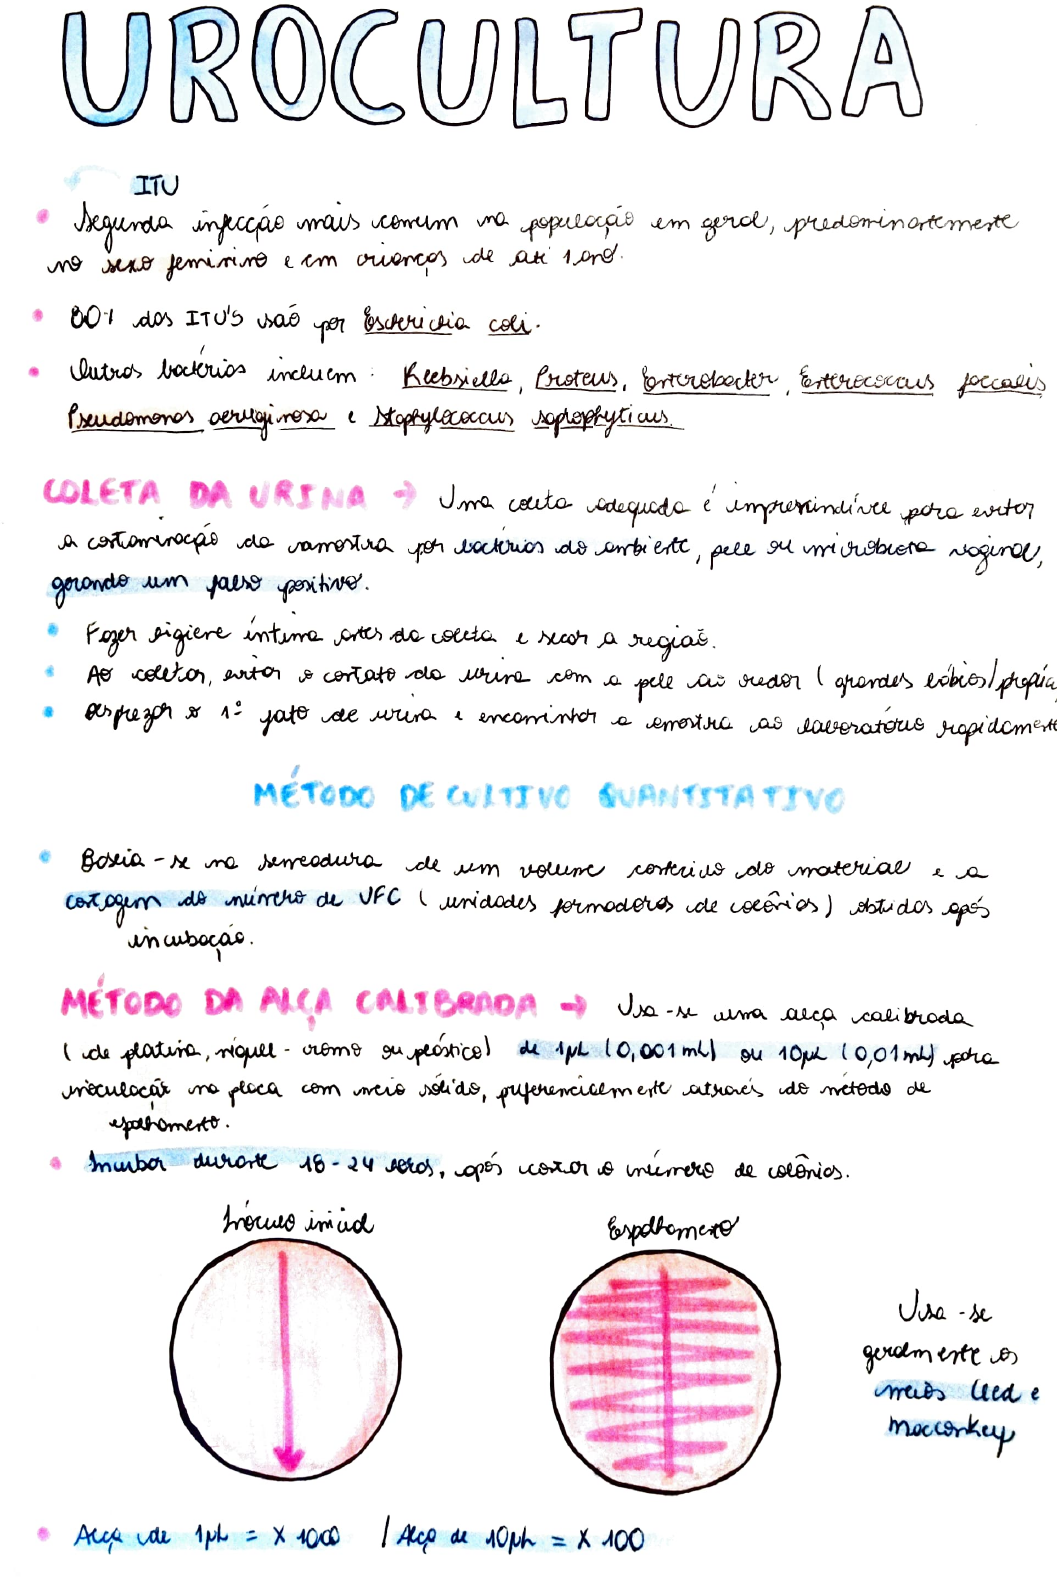 UROCULTURA
ITU
• Segunda infecção mais comum na população em geral, predominantemente
no sexo feminino e em crianças de até 1 ano.
• 80% dos ITU'S são por Escherichia coli.
• Outras bactérias incluem: Klebsiella, Proteus, Enterobacter, Enterococcus faecalis,
Pseudomonas aeruginosa e Staphylococcus saprophyticus.
COLETA DA URINA → Uma coleta adequada é imprescindível para evitar
a contaminação da amostra por bactérias do ambiente, pele ou microbiota vaginal,
gerando um falso positivo.
• Fazer higiene íntima antes da coleta e secar a região.
• Ao coletar, evitar o contato da urina com a pele ao redor (grandes lábios/
• Desprezar o 1º jato de urina e encaminhar a amostra ao laboratório rapidamente
MÉTODO DE CULTIVO QUANTITATIVO
• Baseia-se na semeadura de um volume conhecido do material e a
contagem do número de UFC (unidades formadoras de colônias) obtidas após
incubação.
MÉTODO DA ALÇA CALIBRADA → Usa-se uma alça calibrada
(de platina, níquel-cromo ou plástico) de 1µL (0,001 mL) ou 10µL (0,01 mL) para
inoculação na placa com meio sólido, preferencialmente através do método de
espalhamento.
• Incubar durante 18-24 horas, após contar o número de colônias.
Inóculo inicial
Espalhamento
Usa-se
geralmente os
meios Cled e
Macconkey
• Alça de 1µL = X 1000 / Alça de 10µL = X 100